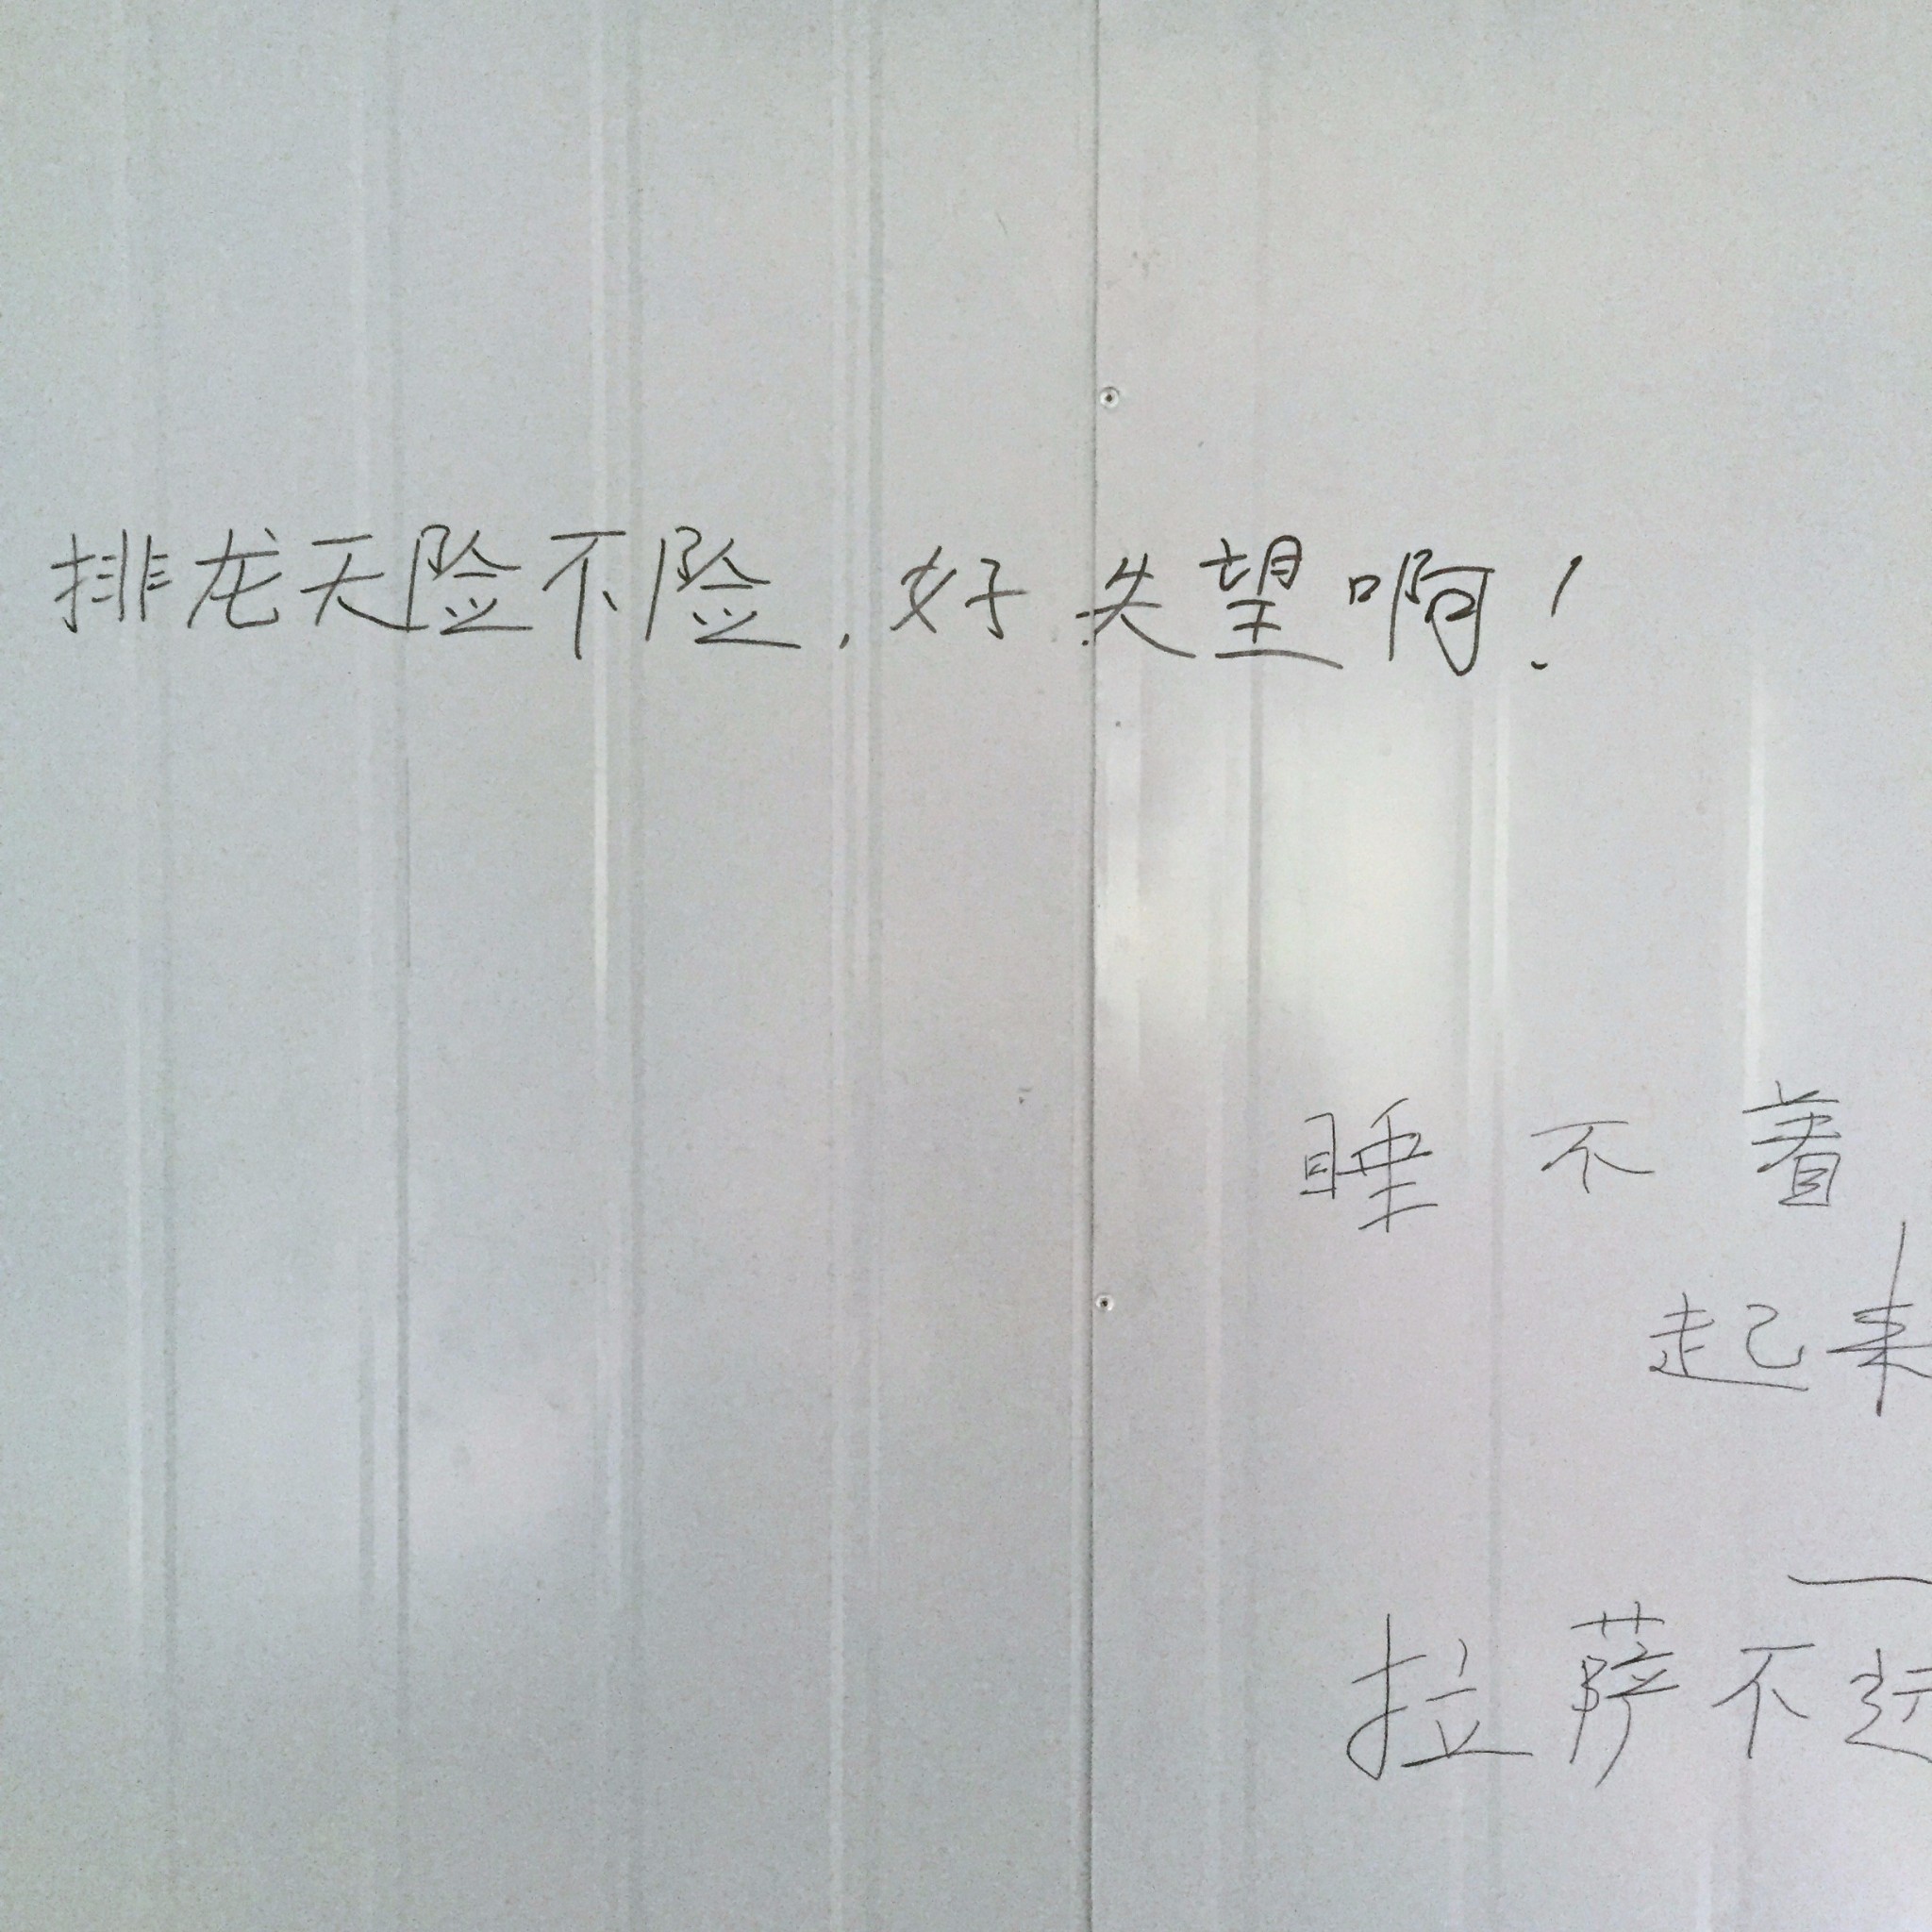 排龙天险不险,好失望啊!
睡不着
起来
拉萨不远